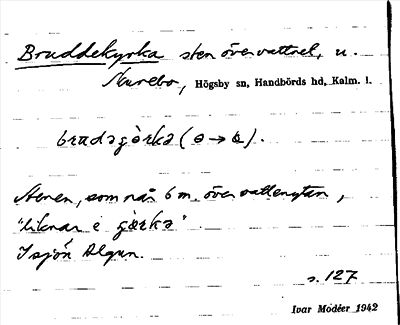 Bruddekyrka sten över vattnet, u.
Nurebo, Högsby sn, Handbörds hd, Kalm. l.
brudəgèrkə
Stenen, som når 6 m. över vattenytan,
"liknar e gærkə"
I sjön Algun.
s. 127
Ivar Modéer 1942